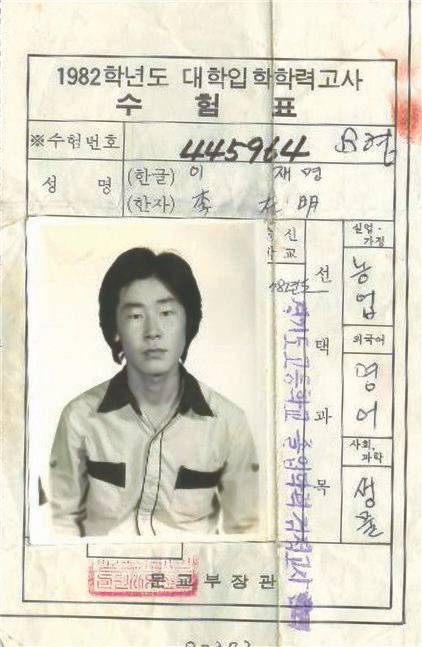 1982학년도 대학입학학력고사
수험표
※수험번호 445964
성명 (한글) 이재명
(한자) 李 明
선택과목
실업·가정 농업
외국어 영어
사회, 과학 생물
경기도 고등학교
문교부장관